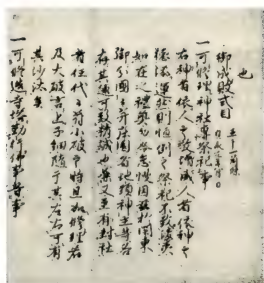 也
御成敗式目 五十一箇條
一可修理神社専祭祀事
右神者依人之敬増威人者依神之
徳添運然則恒例之祭祀不致陵夷
如在之禮奠勿令怠慢因茲於関東
御分國々并庄園者地頭神主等各
存其趣可致精誠也兼又至有封社
者任代々之符小破之時且加修理若
及大破言上子細随于其左右可有
其沙汰矣
一可修造寺塔勤行佛事等事